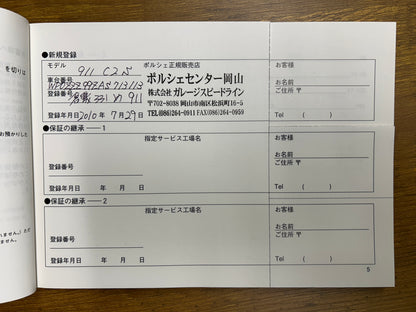 を切りは
お預かりした
れません。)ただ
ません。
●新規登録
モデル 911 C2S
車台番号
登録番号 め 911
登録年月日 2010 年 7 月 29 日
ポルシェ正規販売店
ポルシェセンター岡山
株式会社 ガレージスピードライン
〒702-8038 岡山市南区松浜町16-5
TEL(086)264-0911 FAX(086)264-0959
お客様
お名前
ご住所 〒
Tel ( )
●保証の継承——1
登録番号
登録年月日 年 月 日
指定サービス工場名
お客様
お名前
ご住所 〒
Tel ( )
●保証の継承——2
登録番号
登録年月日 年 月 日
指定サービス工場名
お客様
お名前
ご住所 〒
Tel ( )
5